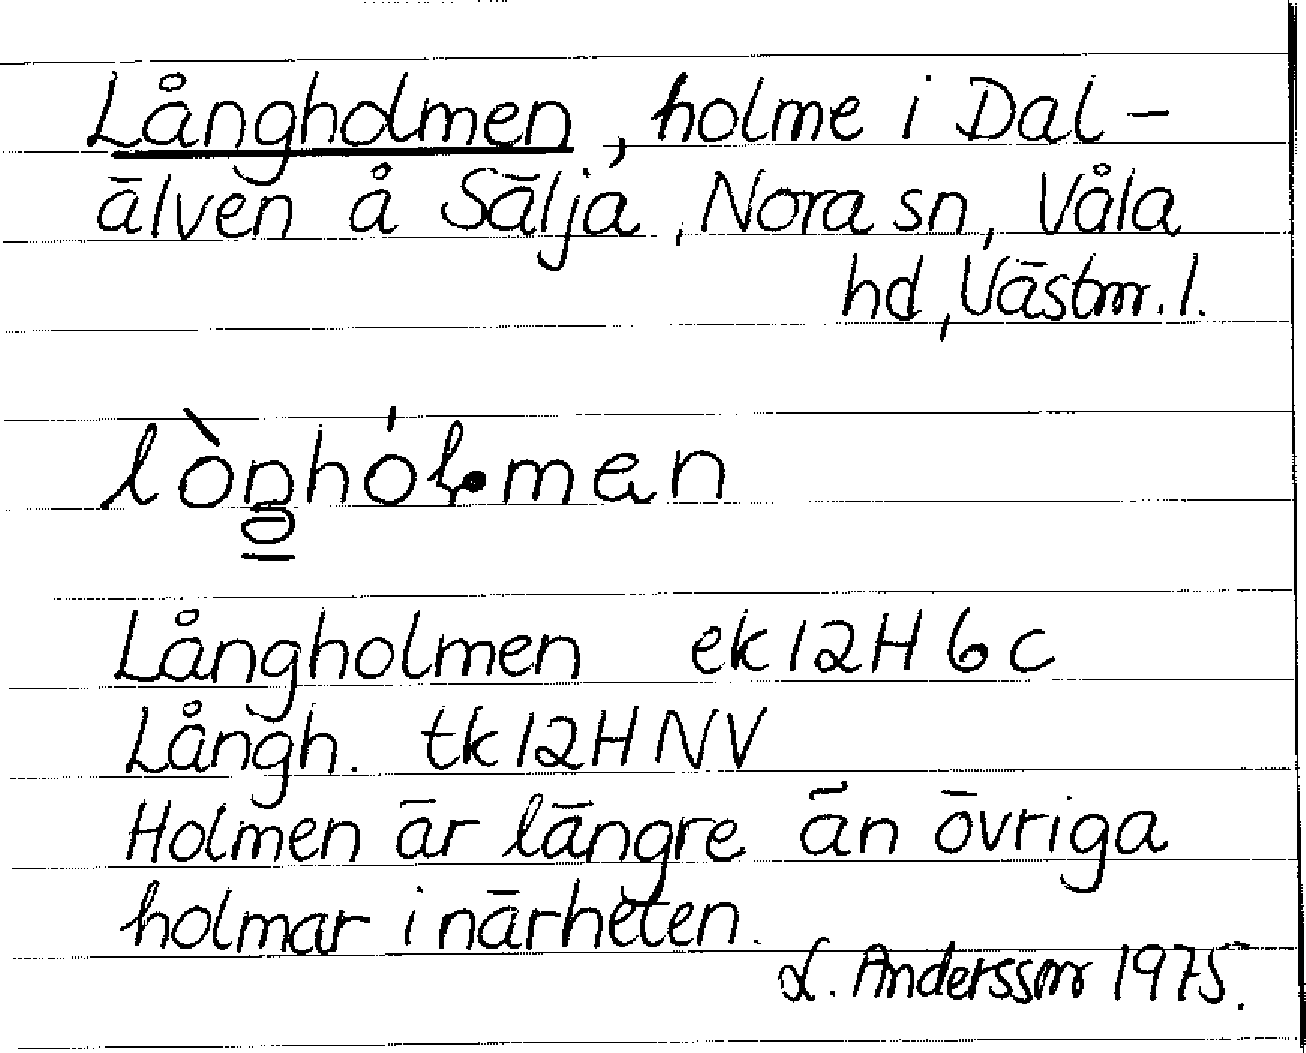 Långholmen, holme i Dal-
älven å Sälja, Nora sn, Våla
hd, Västm. l.
lòŋhólmen
Långholmen ek 12H 6c
Långh. tk 12H NV
Holmen är längre än övriga
holmar i närheten.
L. Andersson 1975.